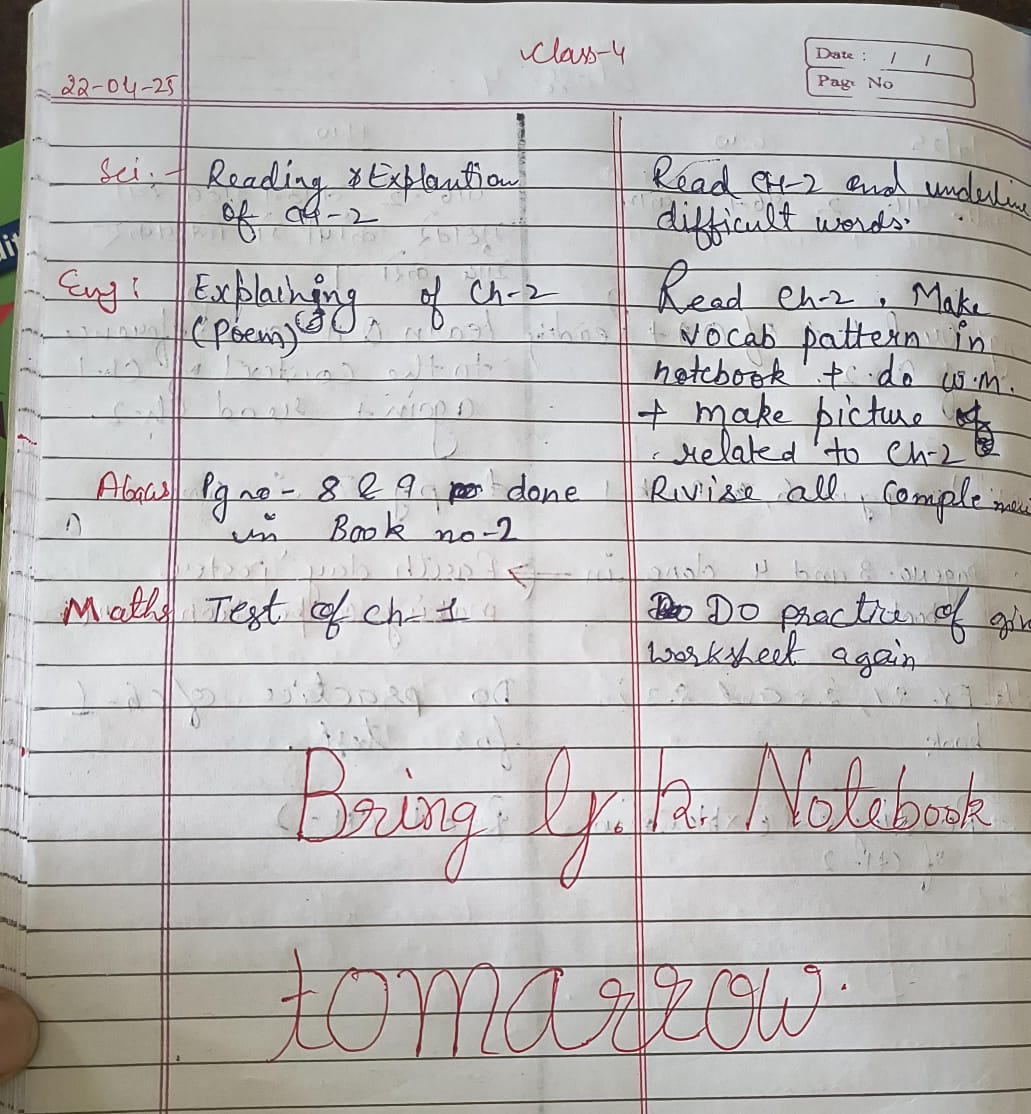 Class-4
Date : / /
Page No
22-04-25
Sci:- Reading & Explantion Read CH-2 and underline
of CH-2 difficult words.
Eng: Explaining of Ch-2 Read Ch-2, Make
(Poem) vocab pattern in
notebook + do w.m.
+ make picture of
related to Ch-2
Abacus Pg no - 8 & 9 done Rivise all comple
in Book no-2
Maths Test of Ch-1 Do practice of
worksheet again
Bring G.k. Notebook
tomarrow.